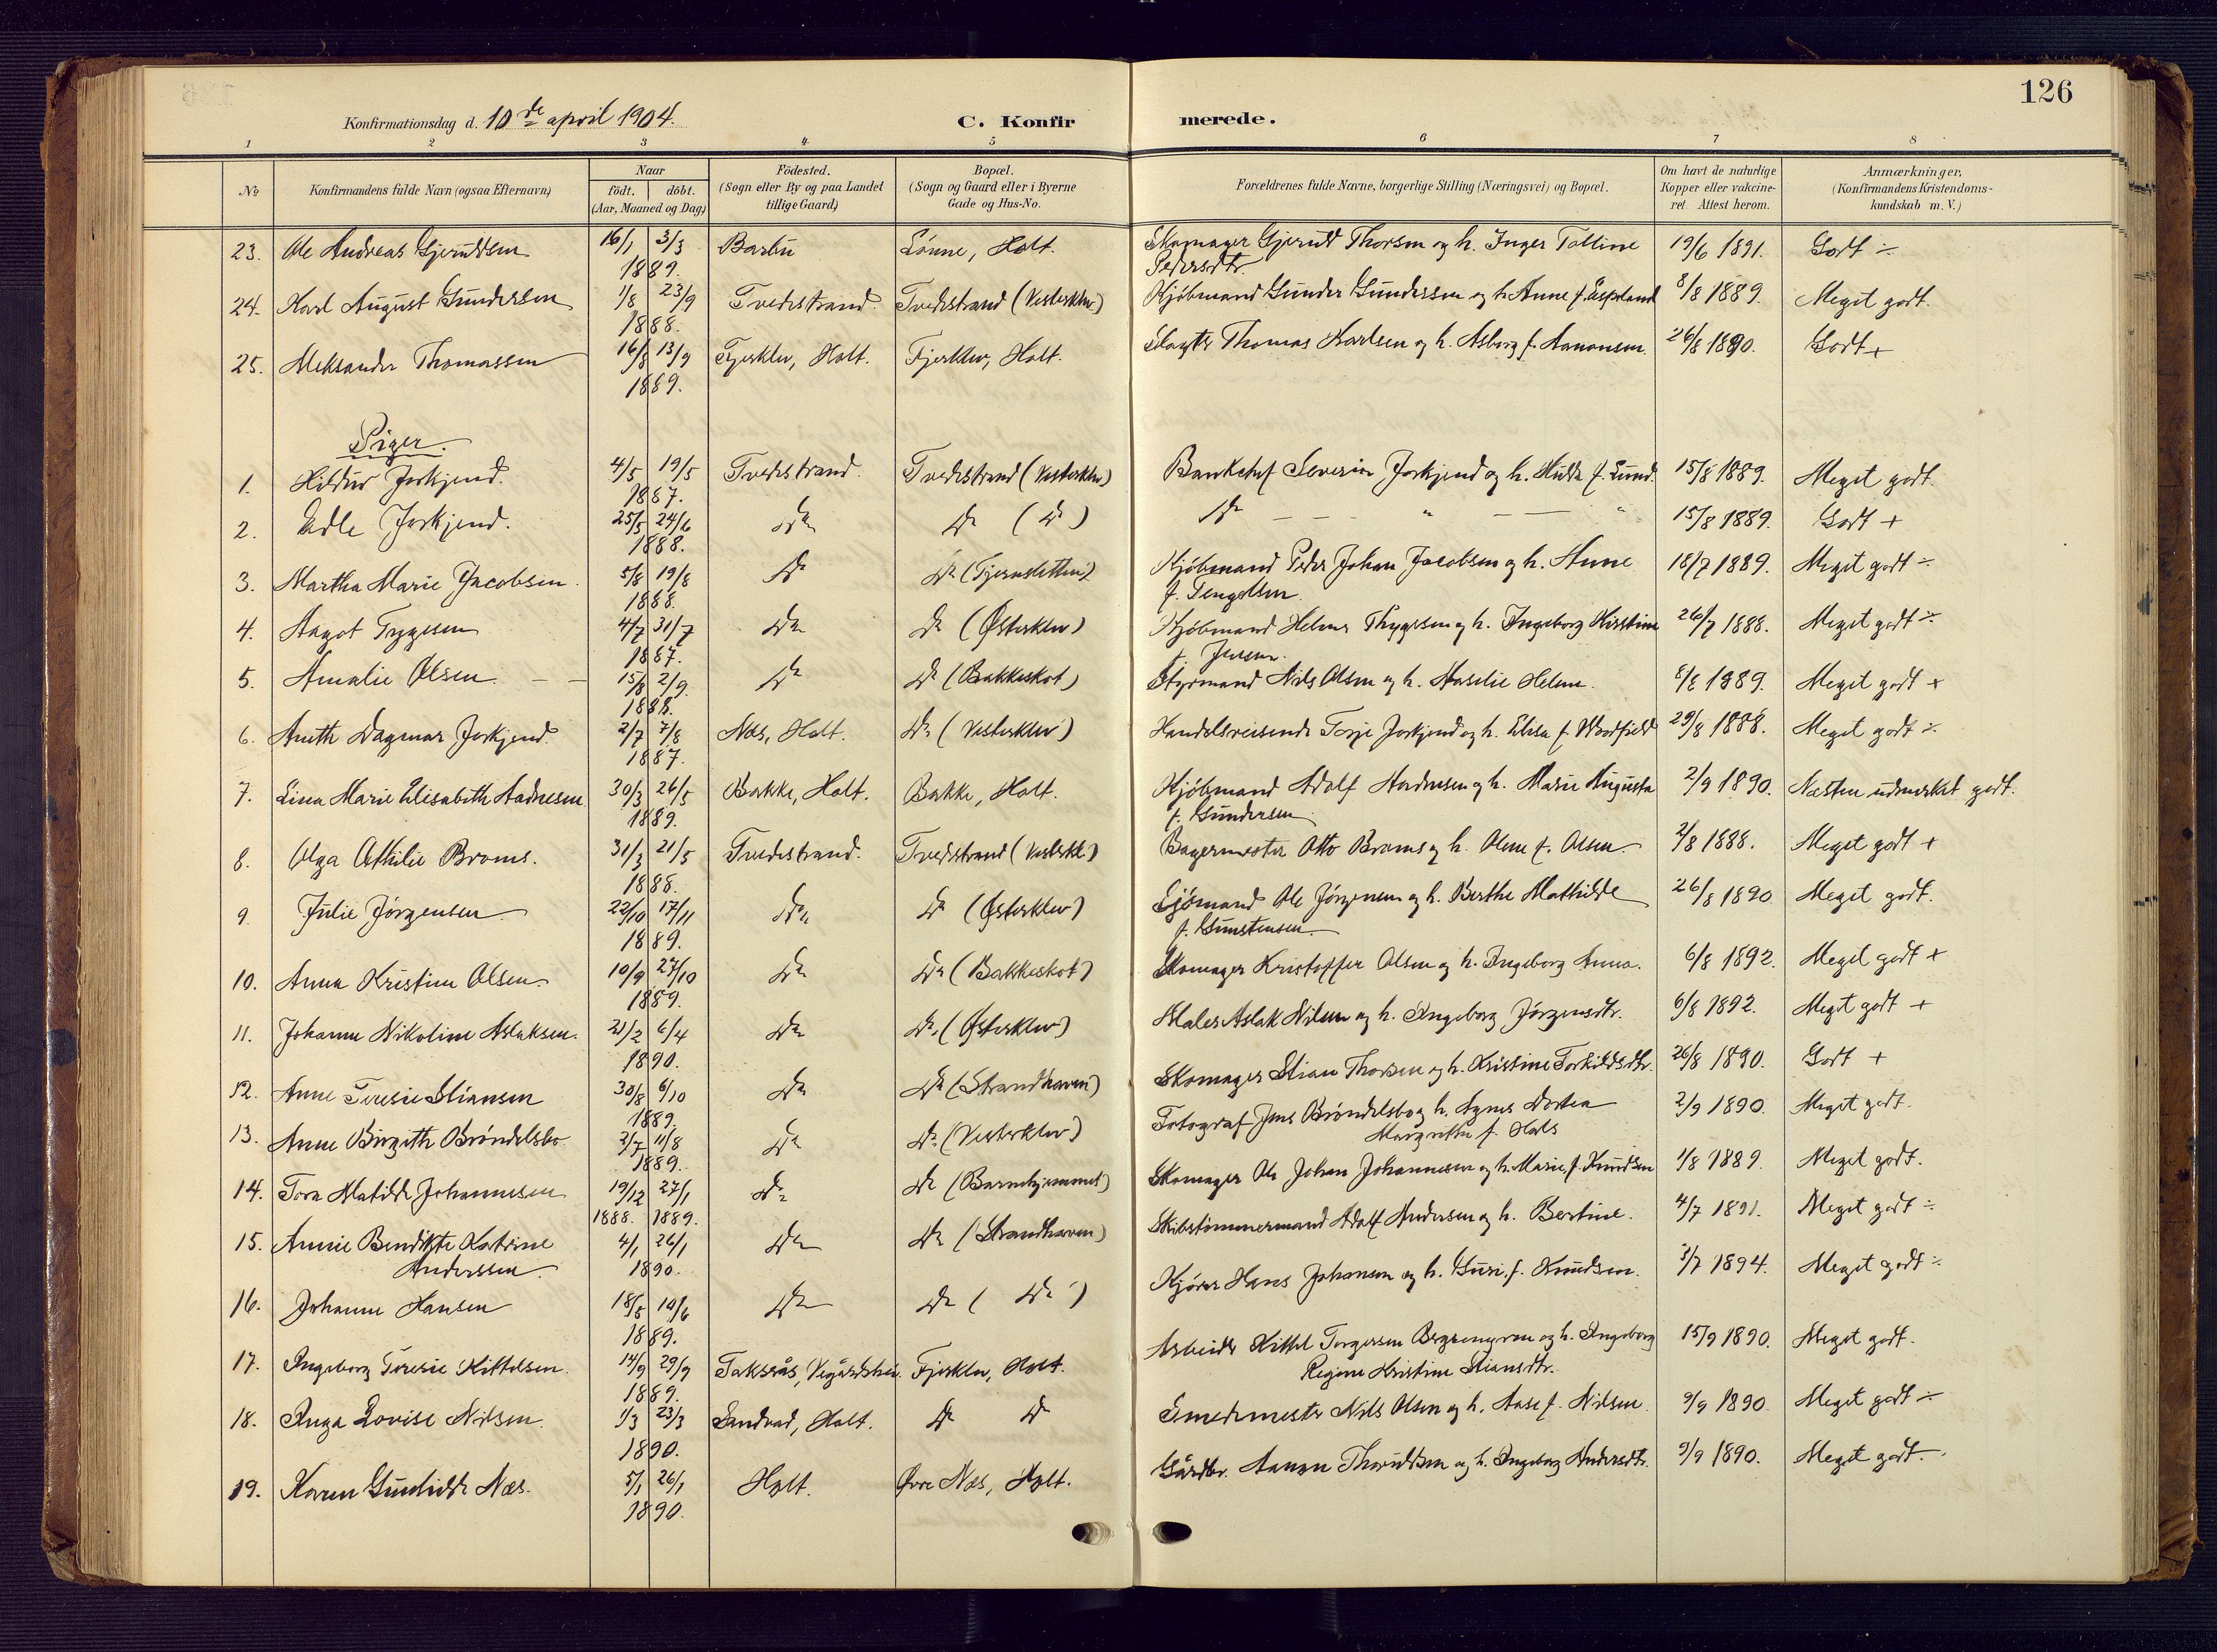 126
Konfirmationsdag d. 10de april 1904.
C. Konfirmerede.
1 2 3 4 5 6 7 8
No
Konfirmandens fulde Navn (ogsaa Efternavn)
Naar
födt. döbt.
(Aar, Maaned og Dag)
Födested.
(Sogn eller By og paa Landet
tillige Gaard)
Bopæl.
(Sogn og Gaard eller i Byerne
Gade og Hus-No.
Forældrenes fulde Navne, borgerlige Stilling (Næringsvei) og Bopæl.
Om havt de naturlige
Kopper eller vakcine-
ret. Attest herom.
Anmærkninger.
(Konfirmandens Kristendoms-
kundskab m. V.)
23. Ole Andreas Gjeruldsen 16/1 3/3 Barbu Lönne, Holt. Skomager Gjeruld Thorsen og h. Inger Talline 19/6 1891. Godt ÷
1889. Pedersdtr.
24. Karl August Gundersen 1/8 23/9 Tvedestrand. Tvedestrand (Vesterklev) Kjöbmand Gunder Gundersen og h. Anne f. Espeland 8/8 1889. Meget godt.
1888.
25. Aleksander Thomassen 16/8 13/9 Fjerklev, Holt. Fjerklev, Holt. Slagter Thomas Karlsen og h. Asborg f. Aanonsen. 26/8 1890. Godt +
1889.
Piger.
1. Hildur Jorkjend. 4/5 19/5 Tvedestrand. Tvedestrand (Vesterklev) Bankchef Severin Jorkjend og h. Hulda f. Lund. 15/8 1889. Meget godt.
1887.
2. Edle Jorkjend. 25/5 24/6 Do Do (Do) Do — — — " — — " 15/8 1889. Godt +
1888.
3. Martha Marie Jacobsen. 5/8 19/8 Do Do (Tjernsletten) Kjöbmand Peder Johan Jacobsen og h. Anne 18/7 1889. Meget godt ÷
1888. f. Tengelsen.
4. Aagot Tygesen 4/7 31/7 Do Do (Østerklev) Kjöbmand Helmer Thygesen og h. Ingeborg Kirstine 26/7 1888. Meget godt ÷
1887. f. Jensen.
5. Amalie Olsen — — 15/8 2/9. Do Do (Bakkeskot) Styrmand Nils Olsen og h. Maselie Helene. 8/8 1889. Meget godt +
1888.
6. Aneth Dagmar Jorkjend. 2/7 7/8 Næs, Holt. Do (Vesterklev) Handelsreisende Terje Jorkjend og h. Elisa f. Woodfield 29/8 1888. Meget godt ÷
1887.
7. Lina Marie Elisabeth Aadnesen 30/3 26/5 Bakke, Holt. Bakke, Holt. Kjöbmand Adolf Aadnesen og h. Marie Augusta 2/9 1890. Næsten udmærket godt.
1889. f. Gundersen
8. Olga Othilie Broms. 31/3 21/5 Tvedestrand. Tvedestrand (Vesterkl.) Bagermester Otto Broms og h. Olene f. Olsen. 2/8 1888. Meget godt +
1888.
9. Julie Jörgensen 22/10 17/11 Do Do (Østerklev) Sjömand Ole Jörgensen og h. Berthe Mathilde 26/8 1890 Meget godt.
1889. f. Gunstensen
10. Anna Kristine Olsen 10/9 27/10 Do Do (Bakkeskot) Skomager Kristoffer Olsen og h. Ingeborg Anna. 6/8 1892. Meget godt +
1889.
11. Johanne Nikoline Aslaksen. 21/2 6/4 Do Do, (Østerklev) Maler Aslak Nilsen og h. Ingeborg Jörgensdtr. 6/8 1892. Meget godt +
1890.
12. Anne Teresie Stiansen 30/8 6/10 Do Do (Strandhaven) Skomager Stian Thorsen og h. Kristine Torkildsdtr. 26/8 1890. Godt +
1889.
13. Anne Birgith Bröndelsbo 2/7 11/8 Do Do (Vesterklev) Fotograf Jens Bröndelsbo og h. Agnes Dortea 2/9 1890. Meget godt.
1889. Margrethe f. Hals
14. Tora Matilde Johannesen 19/12 27/1 Do Do (Barnehjemmet) Skomager Ole Johan Johannesen og h. Marie f. Knudsen 1/8 1889. Meget godt.
1888. 1889.
15. Annie Bendikte Katrine 4/1 26/1 Do Do (Strandhaven) Skibstömmermand Adolf Andersen og h. Bertine. 4/7 1891. Meget godt ÷
Anderssen. 1890.
16. Johanne Hansen 18/5 10/6 Do Do (Do) Kjörer Hans Johansen og h. Guri, f. Knudsen. 3/7 1894. Meget godt ÷
1889.
17. Ingeborg Teresie Kittelsen. 14/9 29/9 Taksrås, Vegårdshei. Fjerklev, Holt. Arbeider Kittel Torgersen Bergsmyren og h. Ingeborg 15/9 1890. Meget godt.
1889. Regine Kristine Stiansdtr.
18. Inga Lovise Nilsen. 1/3 23/3 Sandvad, Holt. Do Do Smedemester Nils Olsen og h. Aase f. Nilsen. 9/9 1890. Meget godt ÷
1890.
19. Karen Gunhilde Næs. 5/1 26/1 Holt. Øvre Næs, Holt. Gårdbr. Aanon Thoruldsen og h. Ingeborg Andersdtr. 9/9 1890. Meget godt.
1890.